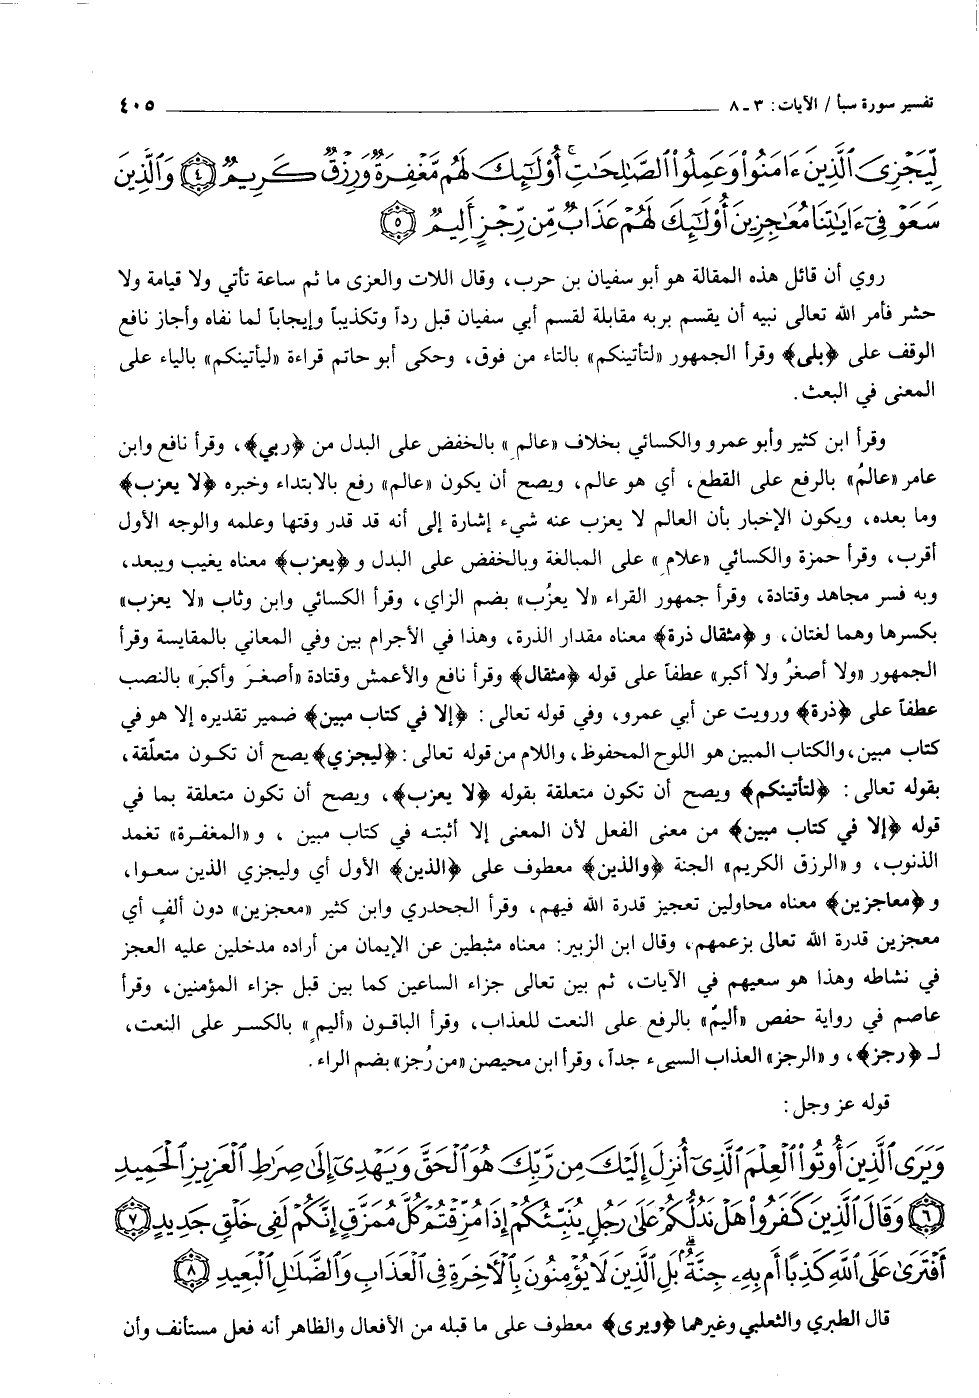 تفسير سورة سبأ / الآيات: ٣ - ٨ ٤٠٥
لِّيَجْزِىَ ٱلَّذِينَ ءَامَنُوا۟ وَعَمِلُوا۟ ٱلصَّٰلِحَٰتِ ۚ أُو۟لَٰٓئِكَ لَهُم مَّغْفِرَةٌ وَرِزْقٌ كَرِيمٌ ﴿٤﴾ وَٱلَّذِينَ
سَعَوْ فِىٓ ءَايَٰتِنَا مُعَٰجِزِينَ أُو۟لَٰٓئِكَ لَهُمْ عَذَابٌ مِّن رِّجْزٍ أَلِيمٌ ﴿٥﴾
روي أن قائل هذه المقالة هو أبو سفيان بن حرب، وقال اللات والعزى ما ثم ساعة تأتي ولا قيامة ولا
حشر فأمر الله تعالى نبيه أن يقسم بربه مقابلة لقسم أبي سفيان قبل رداً وتكذيباً وإيجاباً لما نفاه وأجاز نافع
الوقف على ﴿بلى﴾ وقرأ الجمهور «لتأتينكم» بالتاء من فوق، وحكى أبو حاتم قراءة «ليأتينكم» بالياء على
المعنى في البعث.
وقرأ ابن كثير وأبو عمرو والكسائي بخلاف «عالمِ» بالخفض على البدل من ﴿ربي﴾، وقرأ نافع وابن
عامر «عالمُ» بالرفع على القطع، أي هو عالم، ويصح أن يكون «عالم» رفع بالابتداء وخبره ﴿لا يعزب﴾
وما بعده، ويكون الإخبار بأن العالم لا يعزب عنه شيء إشارة إلى أنه قد قدر وقتها وعلمه والوجه الأول
أقرب، وقرأ حمزة والكسائي «علامِ» على المبالغة وبالخفض على البدل و﴿يعزب﴾ معناه يغيب ويبعد،
وبه فسر مجاهد وقتادة، وقرأ جمهور القراء «لا يعزُب» بضم الزاي، وقرأ الكسائي وابن وثاب «لا يعزب»
بكسرها وهما لغتان، و﴿مثقال ذرة﴾ معناه مقدار الذرة، وهذا في الأجرام بين وفي المعاني بالمقايسة وقرأ
الجمهور «ولا أصغرُ ولا أكبر» عطفاً على قوله ﴿مثقال﴾ وقرأ نافع والأعمش وقتادة «أصغرَ وأكبرَ» بالنصب
عطفاً على ﴿ذرة﴾ ورويت عن أبي عمرو، وفي قوله تعالى: ﴿إلا في كتاب مبين﴾ ضمير تقديره إلا هو في
كتاب مبين، والكتاب المبين هو اللوح المحفوظ، واللام من قوله تعالى: ﴿ليجزي﴾ يصح أن تكون متعلقة،
بقوله تعالى: ﴿لتأتينكم﴾ ويصح أن تكون متعلقة بقوله ﴿لا يعزب﴾، ويصح أن تكون متعلقة بما في
قوله ﴿إلا في كتاب مبين﴾ من معنى الفعل لأن المعنى إلا أثبته في كتاب مبين ، و«المغفرة» تغمد
الذنوب، و«الرزق الكريم» الجنة ﴿والذين﴾ معطوف على ﴿الذين﴾ الأول أي وليجزي الذين سعوا،
و﴿معاجزين﴾ معناه محاولين تعجيز قدرة الله فيهم، وقرأ الجحدري وابن كثير «معجزين» دون ألفٍ أي
معجزين قدرة الله تعالى بزعمهم، وقال ابن الزبير: معناه مثبطين عن الإيمان من أراده مدخلين عليه العجز
في نشاطه وهذا هو سعيهم في الآيات، ثم بين تعالى جزاء الساعين كما بين قبل جزاء المؤمنين، وقرأ
عاصم في رواية حفص «أليمٌ» بالرفع على النعت للعذاب، وقرأ الباقون «أليمٍ» بالكسر على النعت،
لـ ﴿رجز﴾، و«الرجز» العذاب السيىء جداً، وقرأ ابن محيصن «من رُجز» بضم الراء.
قوله عز وجل:
وَيَرَى ٱلَّذِينَ أُوتُوا۟ ٱلْعِلْمَ ٱلَّذِىٓ أُنزِلَ إِلَيْكَ مِن رَّبِّكَ هُوَ ٱلْحَقَّ وَيَهْدِىٓ إِلَىٰ صِرَٰطِ ٱلْعَزِيزِ ٱلْحَمِيدِ
﴿٦﴾ وَقَالَ ٱلَّذِينَ كَفَرُوا۟ هَلْ نَدُلُّكُمْ عَلَىٰ رَجُلٍ يُنَبِّئُكُمْ إِذَا مُزِّقْتُمْ كُلَّ مُمَزَّقٍ إِنَّكُمْ لَفِى خَلْقٍ جَدِيدٍ ﴿٧﴾
أَفْتَرَىٰ عَلَى ٱللَّهِ كَذِبًا أَم بِهِۦ جِنَّةٌۢ ۗ بَلِ ٱلَّذِينَ لَا يُؤْمِنُونَ بِٱلْءَاخِرَةِ فِى ٱلْعَذَابِ وَٱلضَّلَٰلِ ٱلْبَعِيدِ ﴿٨﴾
قال الطبري والثعلبي وغيرهما ﴿ويرى﴾ معطوف على ما قبله من الأفعال والظاهر أنه فعل مستأنف وأن